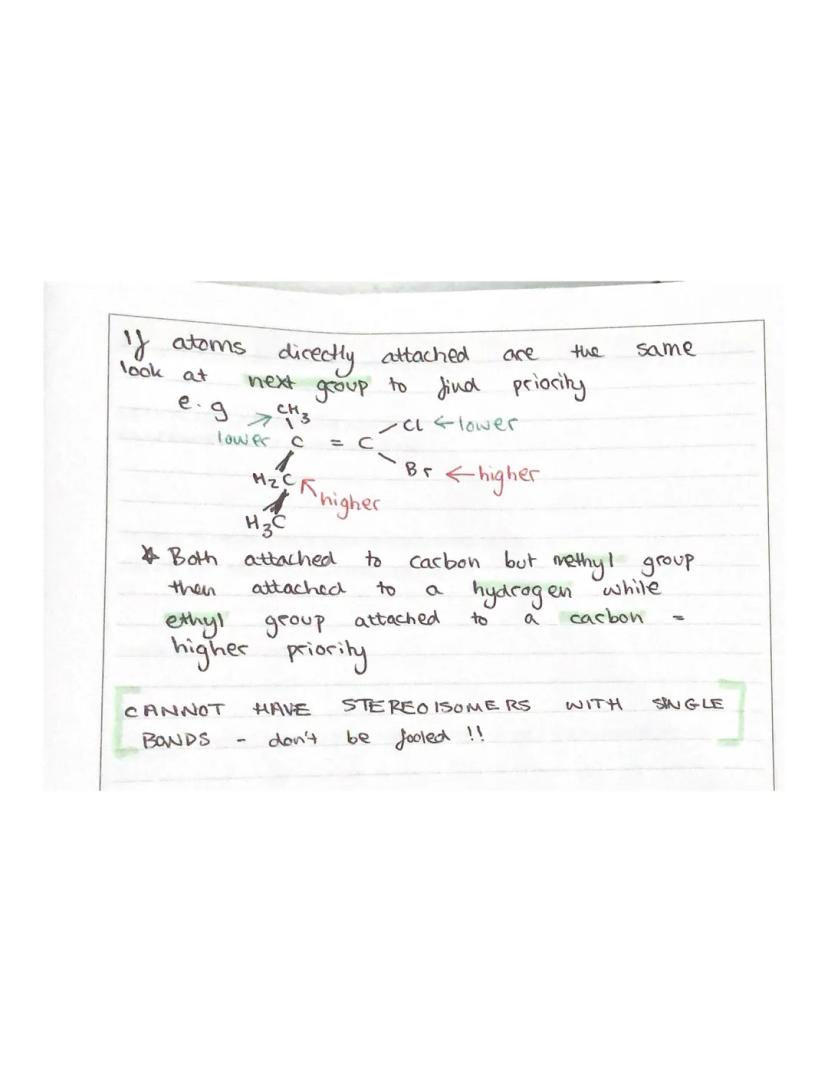 If atoms directly attached are the same
look at next group to find priority
e.g CH3
Cl ← lower
lower C = C
Br ← higher
H2C
higher
H3C
* Both attached to carbon but methyl group
then attached to a hydrogen while
ethyl group attached to a carbon =
higher priority
CANNOT HAVE STEREOISOMERS WITH SINGLE
BONDS - don't be fooled !!